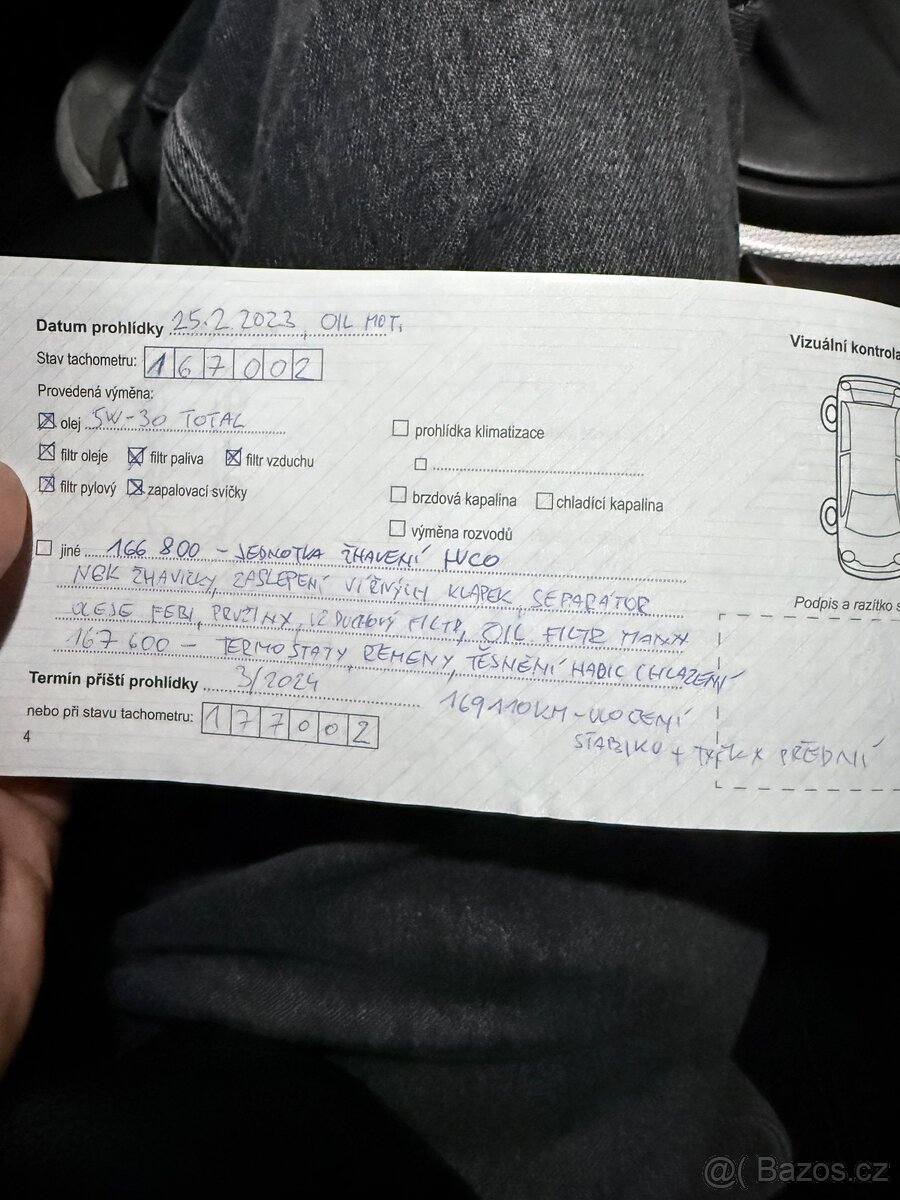 Datum prohlídky 25.2.2023 OIL MOT.
Vizuální kontrola
Stav tachometru: 167002
Provedená výměna:
olej 5W-30 TOTAL
prohlídka klimatizace
filtr oleje filtr paliva filtr vzduchu
filtr pylový zapalovací svíčky
brzdová kapalina chladící kapalina
výměna rozvodů
jiné 166 800 - JEDNOTKA ŽHAVENÍ HUCO
NGK ŽHAVIČKY, ZASLEPENÍ VÍŘIVÝCH KLAPEK, SEPARÁTOR
OLEJE FEBI, PRUŽINY, VZDUCHOVÝ FILTR, OIL FILTR MANN
167 600 - TERMOSTATY, ŘEMENY, TĚSNĚNÍ HADIC CHLAZENÍ
Podpis a razítko s
Termín příští prohlídky 3/2024
169110KM - ULOŽENÍ
STABIKU + TYČKY PŘEDNÍ
nebo při stavu tachometru: 177002
4
@( Bazos.cz